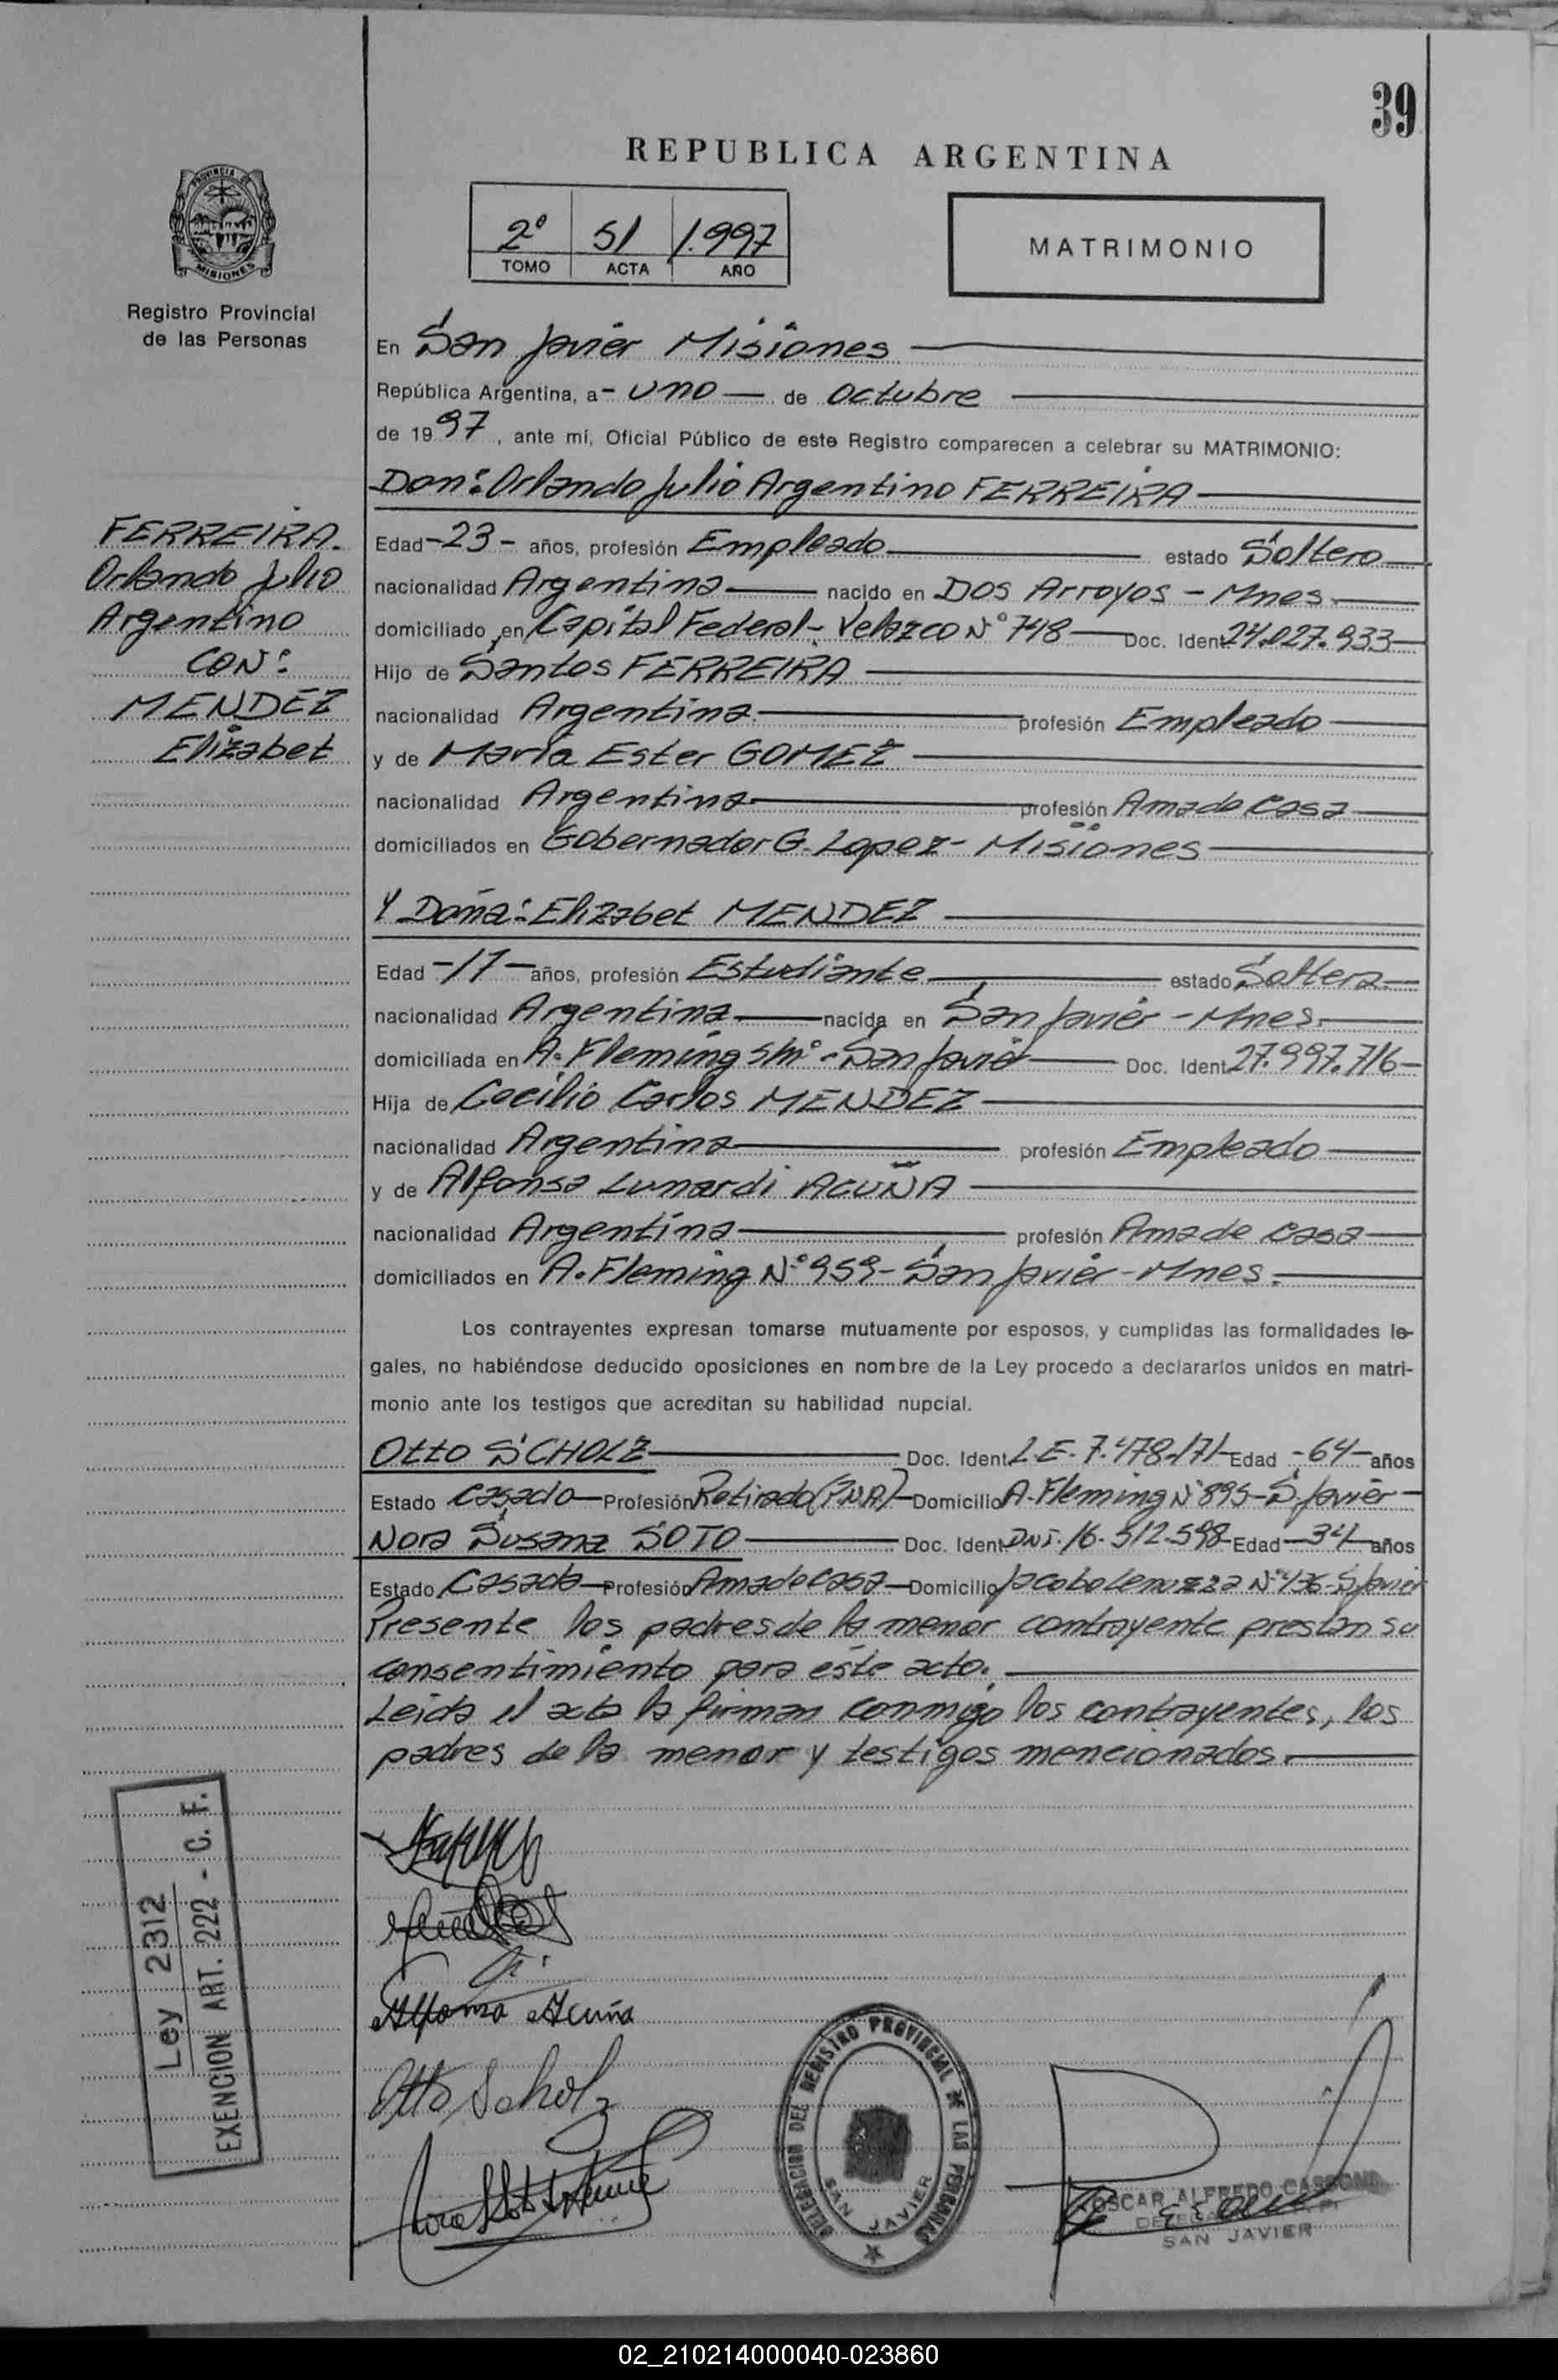 39
REPUBLICA ARGENTINA
2º 51 1.997
TOMO ACTA AÑO
MATRIMONIO
PROVINCIA DE
MISIONES
Registro Provincial
de las Personas
En San Javier Misiones
República Argentina, a - uno - de Octubre
de 1997, ante mí, Oficial Público de este Registro comparecen a celebrar su MATRIMONIO:
Don: Orlando Julio Argentino FERREIRA
FERREIRA.
Orlando Julio
Argentino
CON:
MENDEZ
Elizabet
Edad -23- años, profesión Empleado estado Soltero
nacionalidad Argentina nacido en Dos Arroyos - Mnes.
domiciliado en Capital Federal - Velazco Nº 748 Doc. Ident 24.027.933
Hijo de Santos FERREIRA
nacionalidad Argentina profesión Empleado
y de María Ester GOMEZ
nacionalidad Argentina profesión Ama de Casa
domiciliados en Gobernador G. Lopez - Misiones
Y Doña: Elizabet MENDEZ
Edad -17- años, profesión Estudiante estado Soltera
nacionalidad Argentina nacida en San Javier - Mnes.
domiciliada en A. Fleming s/nº - San Javier Doc. Ident 27.997.716
Hija de Cecilio Carlos MENDEZ
nacionalidad Argentina profesión Empleado
y de Alfonsa Lunardi ACUÑA
nacionalidad Argentina profesión Ama de casa
domiciliados en A. Fleming Nº 959 - San Javier - Mnes.
Los contrayentes expresan tomarse mutuamente por esposos, y cumplidas las formalidades le-
gales, no habiéndose deducido oposiciones en nombre de la Ley procedo a declararlos unidos en matri-
monio ante los testigos que acreditan su habilidad nupcial.
Otto SCHOLZ Doc. Ident L.E. 7.478.171 Edad -64- años
Estado casado Profesión Retirado (P.N.A) Domicilio A. Fleming Nº 895 - S. Javier
Nora Susana SOTO Doc. Ident DNI. 16.512.598 Edad -34- años
Estado Casada Profesión Ama de casa Domicilio Jacobo Nº 436 - S. Javier
Presente los padres de la menor contrayente prestan su
consentimiento para éste acto.
Leida el acta la firman conmigo los contrayentes, los
padres de la menor y testigos mencionados.
Ley 2312
EXENCION ART. 222 - C. F.
Alfonsa Acuña
Otto Scholz
DELEGACION DEL REGISTRO PROVINCIAL DE LAS PERSONAS
SAN JAVIER
OSCAR ALFREDO
SAN JAVIER
02_210214000040-023860